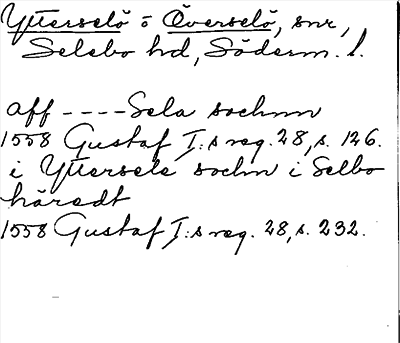 Ytterselö o Överselö, snr,
Selebo hd, Söderm. l.
aff ---- Sela sochnn
1558 Gustaf I:s reg. 28, s. 126.
i Yttersele sochn i Selbo
häredt
1558 Gustaf I:s reg. 28, s. 232.